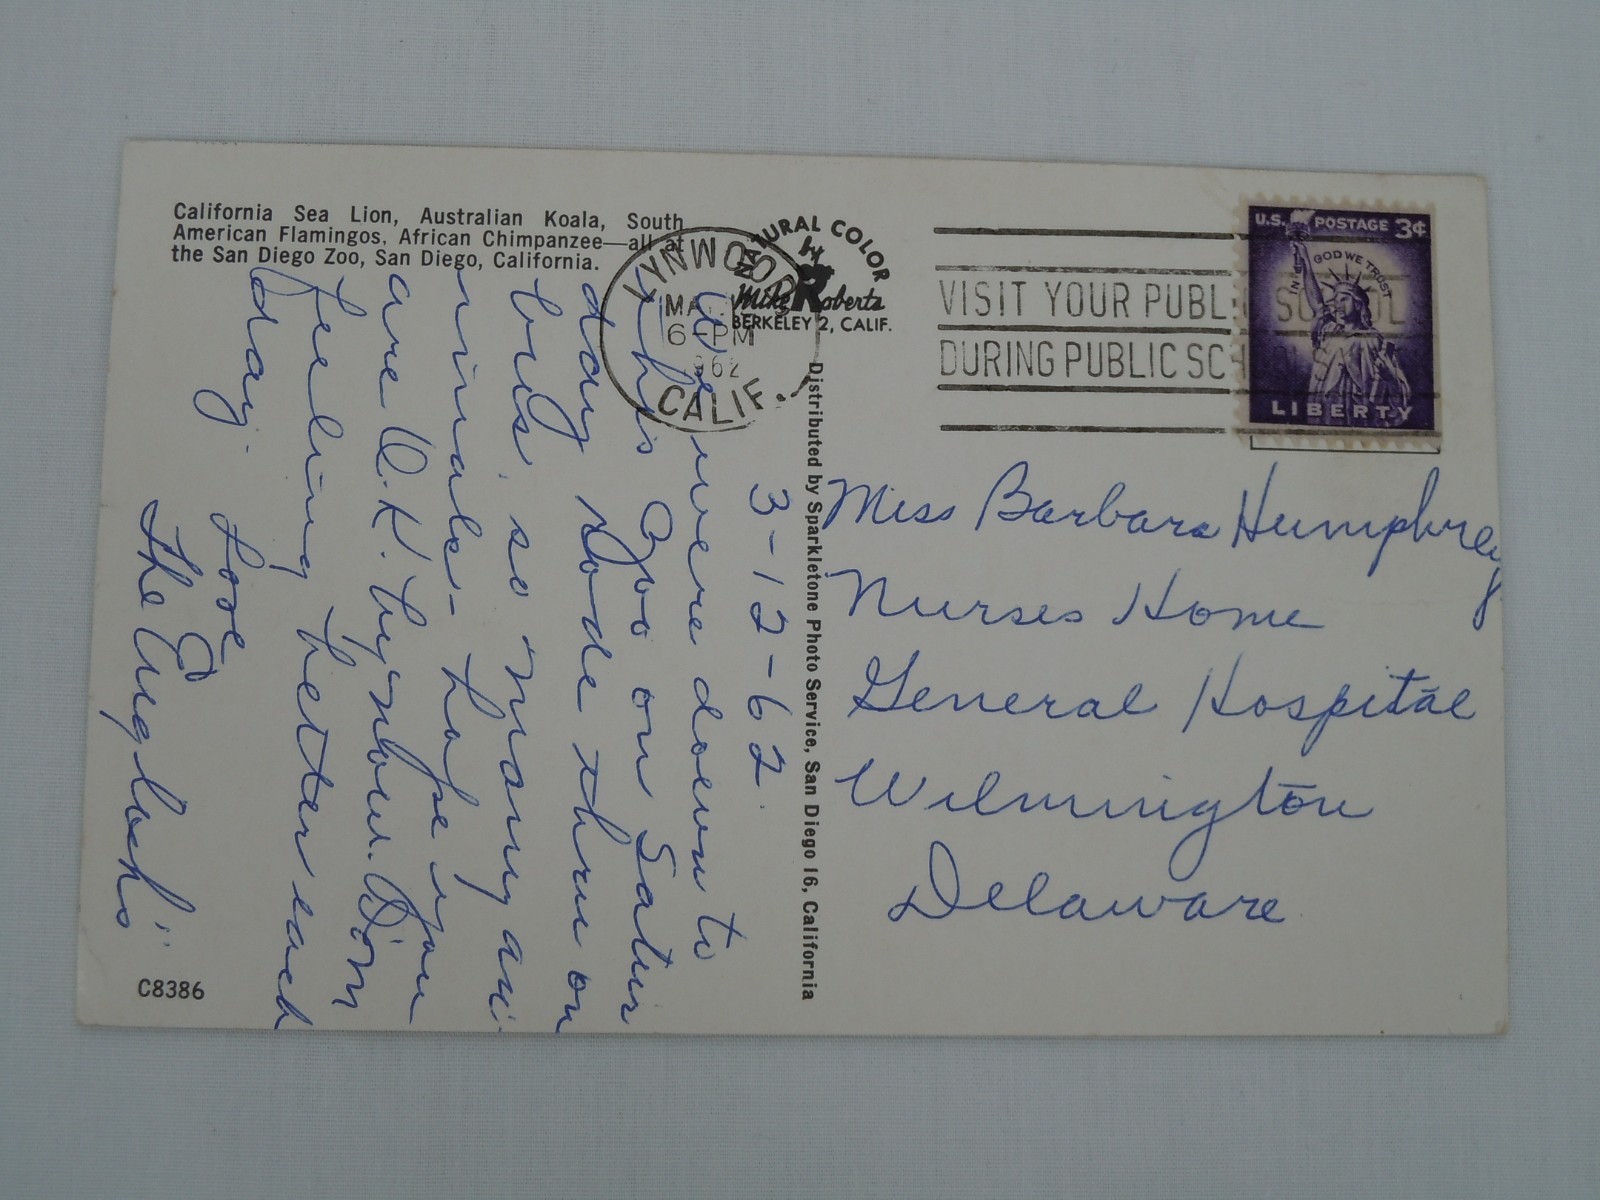 California Sea Lion, Australian Koala, South
American Flamingos, African Chimpanzee—all at
the San Diego Zoo, San Diego, California.
NATURAL COLOR
by
Mike Roberts
BERKELEY 2, CALIF.
LYNWOOD
MA
6 PM
1962
CALIF.
VISIT YOUR PUBL SCHOOL
DURING PUBLIC SCHOOL
U.S. POSTAGE 3¢
IN GOD WE TRUST
LIBERTY
Distributed by Sparkletone Photo Service, San Diego 16, California
3-12-62
We were down to
this Zoo on Satur
day. Rode thru on
bus, so many an-
inimals- Hope you
are O.K. by now. Mom
feeling better each
day.
Love
The Anglach's
Miss Barbara Humphrey
Nurses Home
General Hospital
Wilmington
Delaware
C8386